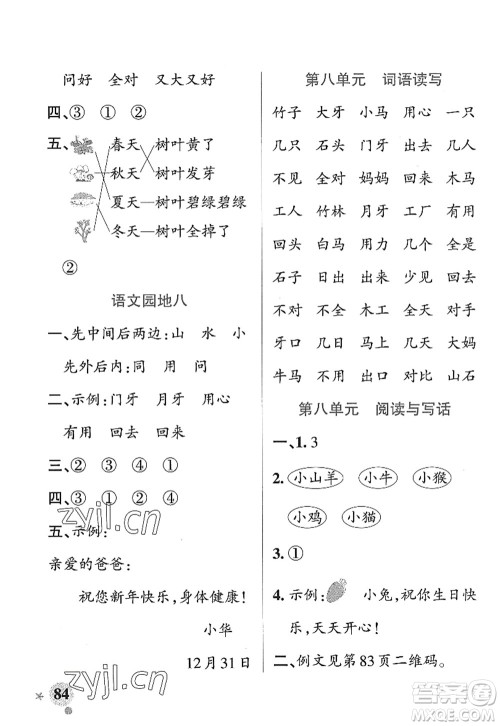 问好 全对 又大又好
四、③ ① ②
五、
春天 树叶黄了
秋天 树叶发芽
夏天 树叶碧绿碧绿
冬天 树叶全掉了
②
语文园地八
一、先中间后两边:山 水 小
先外后内:同 用 问
二、示例:门牙 月牙 用心
有用 回去 回来
三、② ③ ④ ①
四、③ ① ④ ②
五、示例:
亲爱的爸爸:
祝您新年快乐,身体健康!
小华
12月31日
84
第八单元 词语读写
竹子 大牙 小马 用心 一只
几只 石头 门牙 木马 几天
不见 全对 妈妈 回来 木工
工人 竹林 月牙 工厂 有用
回头 白马 用力 回去 几里
石子 日出 出来 少见 回见
不对 不全 木工 全天 对于
牙口 几日 出去 几天 大石
牛马 不用 出口 对比 山石
第八单元 阅读与写话
一、1. 3
2. 小山羊 小牛 小猴
小鸡 小猫
3. ①
4. 示例: 小兔,祝你生日快
乐,天天开心!
二、例文见第83页二维码。
zyjl.cn
zyjl.cn
答案圈
MXQE.COM